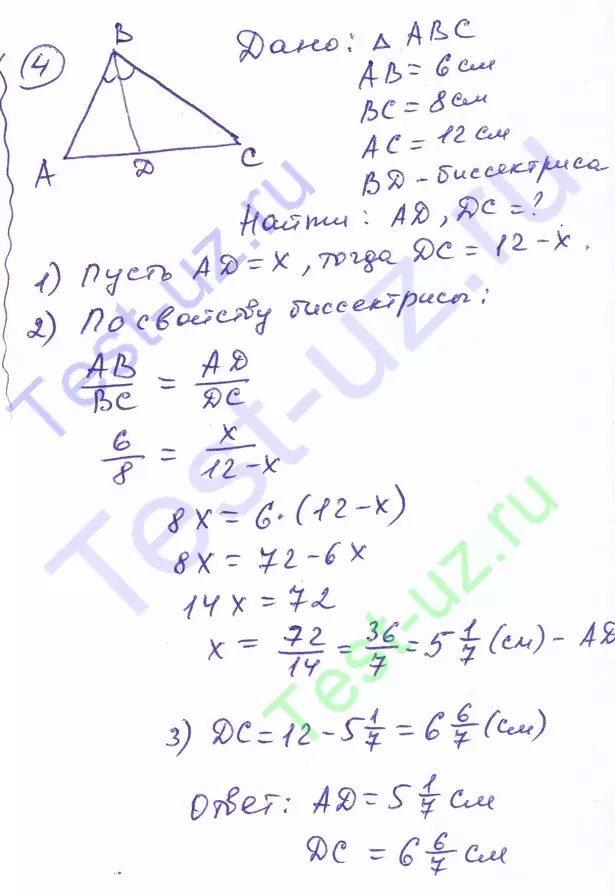 4
B
A
D
C
Дано: △ ABC
AB = 6 см
BC = 8 см
AC = 12 см
BD - биссектриса
Найти: AD, DC = ?
1) Пусть AD = x, тогда DC = 12 - x.
2) По свойству биссектрисы:
AB/BC = AD/DC
6/8 = x/(12 - x)
8x = 6 · (12 - x)
8x = 72 - 6x
14x = 72
x = 72/14 = 36/7 = 5 1/7 (см) - AD
3) DC = 12 - 5 1/7 = 6 6/7 (см)
Ответ: AD = 5 1/7 см
DC = 6 6/7 см
Test-uz.ru
Test-uz.ru
Test-uz.ru